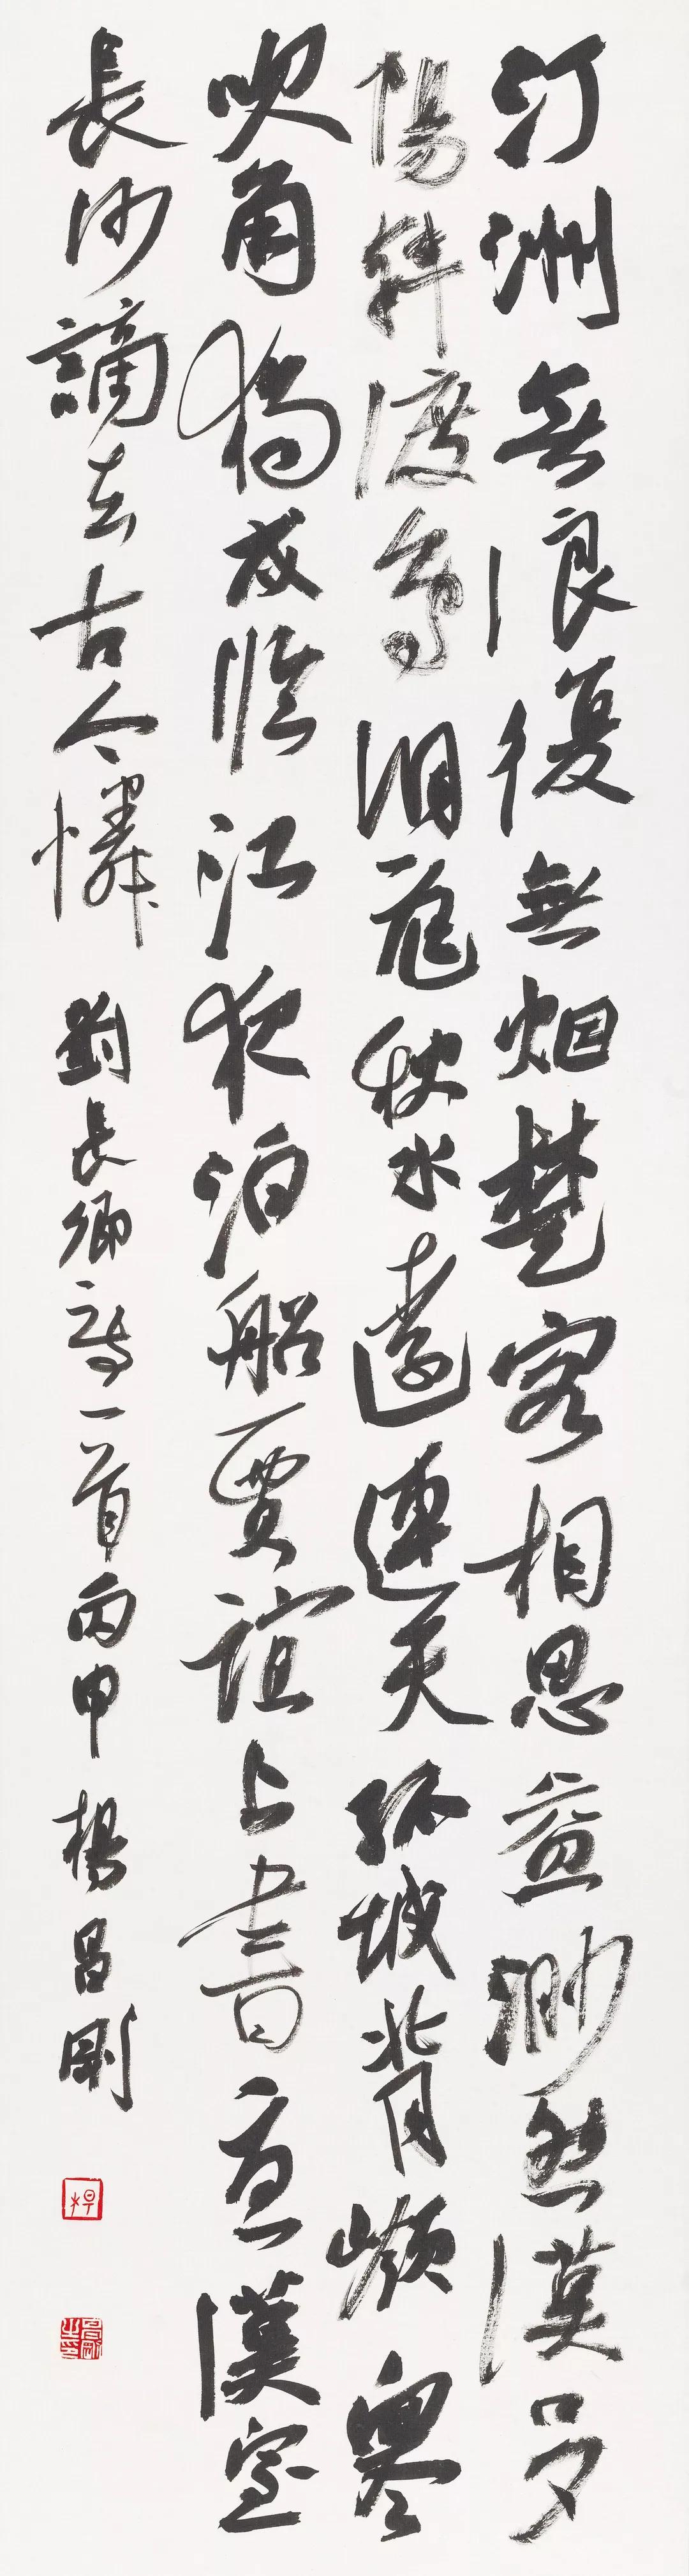 汀洲無浪復無烟楚客相思益渺然漢口夕
陽斜渡鳥洞庭秋水遠連天孤城背嶺寒
吹角獨戍臨江夜泊船賈誼上書憂漢室
長沙謫去古今憐 劉長卿詩一首丙申 楊昌剛